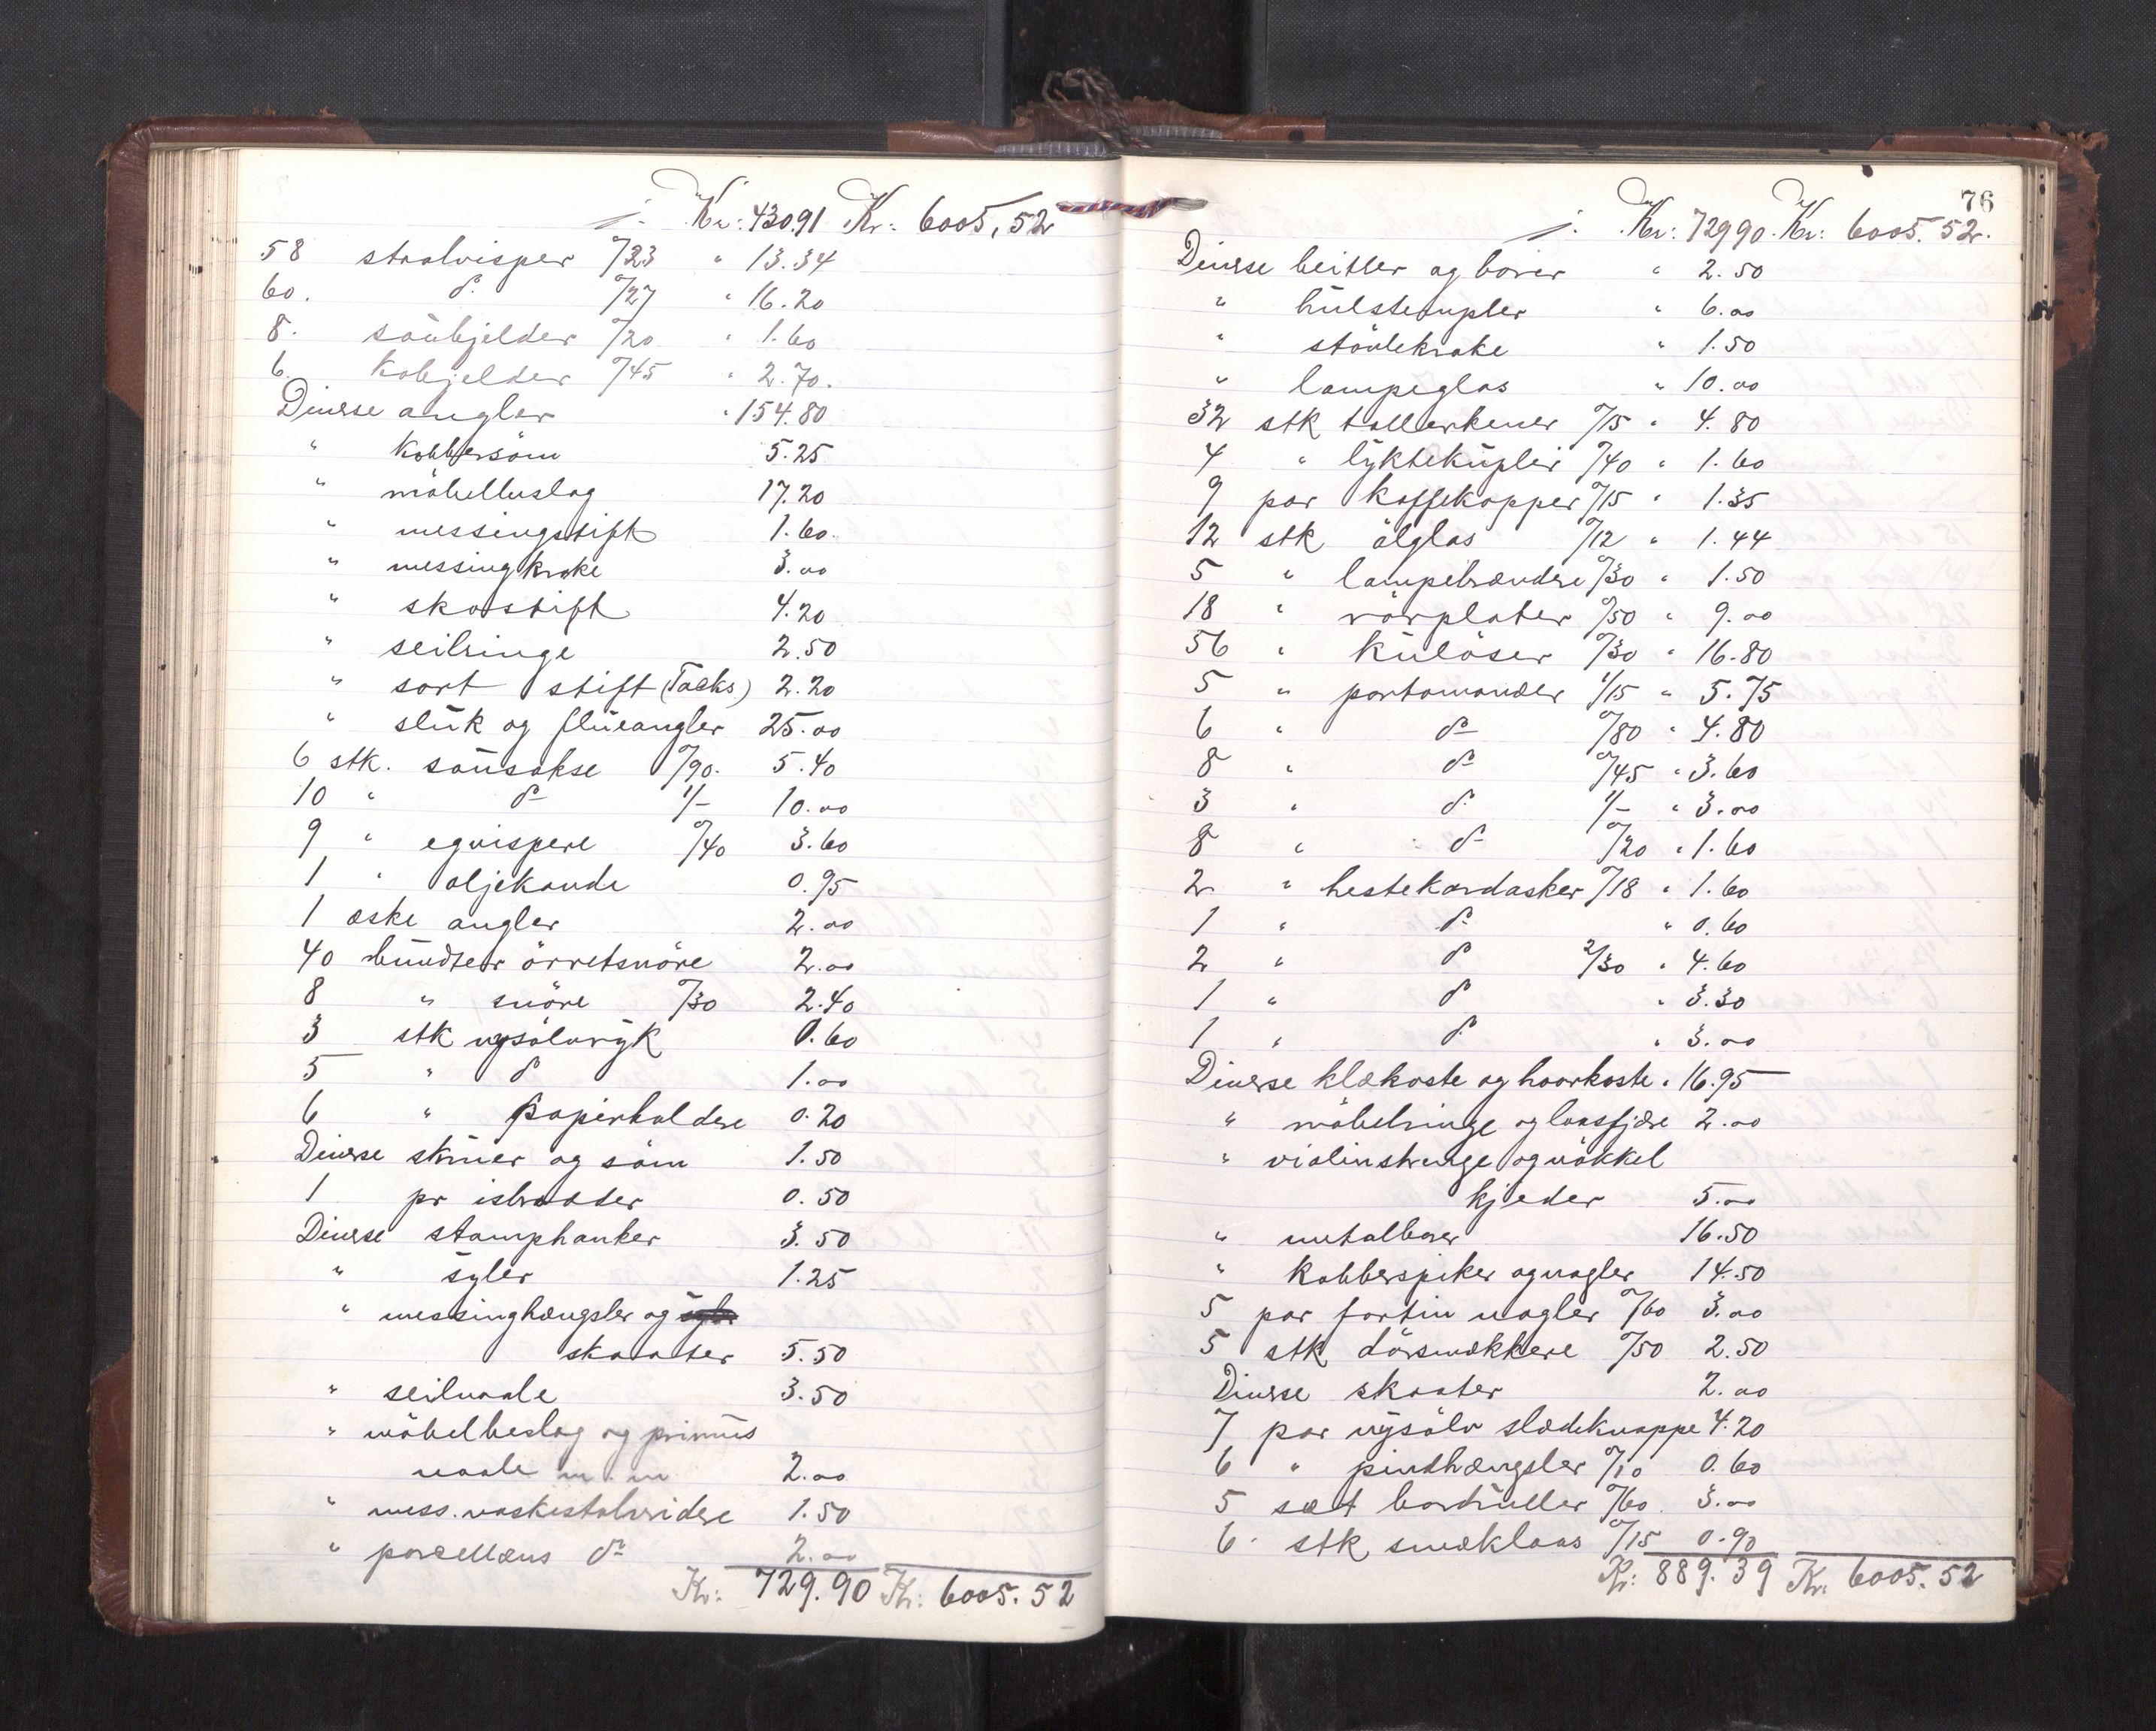 Kr: 430.91 Kr: 6005,52
58 staalvisper 0/23 " 13.34
60. do 0/27 " 16.20
8. saubjelder 0/20 " 1.60
6. Kobjelder 0/45 " 2.70.
Diverse angler " 154.80
" Kobbersöm 5.25
" möbelluslag 17.20
" messingstift 1.60.
" messingkroke 3.00
" skostift 4.20
" seilringe 2.50
" sort stift (Tacks) 2.20
" sluk og flueangler 25.00
6 stk. sausakse 0/90. 5.40
10 " do 1/- 10.00
9 " egvispere 0/40 3.60
1 " oljekande 0.95
1 æske angler 2.00
40 bundter örretsnöre 2.00
8 " snöre 0/30 2.40
3 stk nysölv 0.60
5 " do 1.00
6 " papirholdere 0.20
Diverse skruer og söm 1.50
1 pr isbrodder 0.50
Diverse stamphanker 3.50
" syler 1.25
" messinghængsler og
skaater 5.50
" seilnaale 3.50
" möbelbeslag og primus
naale m.m 2.00
" mess. vaskestolvridere 1.50
" porcellæns do 2.00
Kr: 729.90 Kr: 6005.52
76
Kr: 729.90. Kr: 6005.52.
Diverse beitler og borer " 2.50
" hulstempler " 6.00
" stövlekroke " 1.50
" lampeglas " 10.00
32 stk tallerkener 0/15 " 4.80
4 " lyktekupler 0/40 " 1.60
9 par kaffekopper 0/15 " 1.35
12 stk ölglas 0/12 " 1.44
5 " lampebrændere 0/30 " 1.50
18 " rörplater 0/50 " 9.00
56 " Kulöser 0/30 " 16.80
5 " portomonæer 1/15 " 5.75
6 " do 0/80 " 4.80
8 " do 0/45 " 3.60
3 " do 1/- " 3.00
8 " do 0/20 " 1.60
2 " hestekardasker 0/18 " 1.60
1 " do " 0.60
2 " do 2/30 " 4.60
1 " do " 3.30
1 " do " 3.00
Diverse klækoste og haarkoste " 16.95
" möbelringe og laasfjære 2.00
" violinstrenge og nökkel
kjeder 5.00
" metalborer 16.50
" Kobberspiker og nagler 14.50
5 par fortin nagler 0/60 3.00
5 stk dörsmækkere 0/50 2.50
Diverse skaater 2.00
7 par nysölv slædeknappe 4.20
6 " pindhængsler 0/10 0.60
5 sæt bordruller 0/60. 3.00
6. stk smæklaas 0/15 0.90
Kr: 889.39 Kr. 6005.52